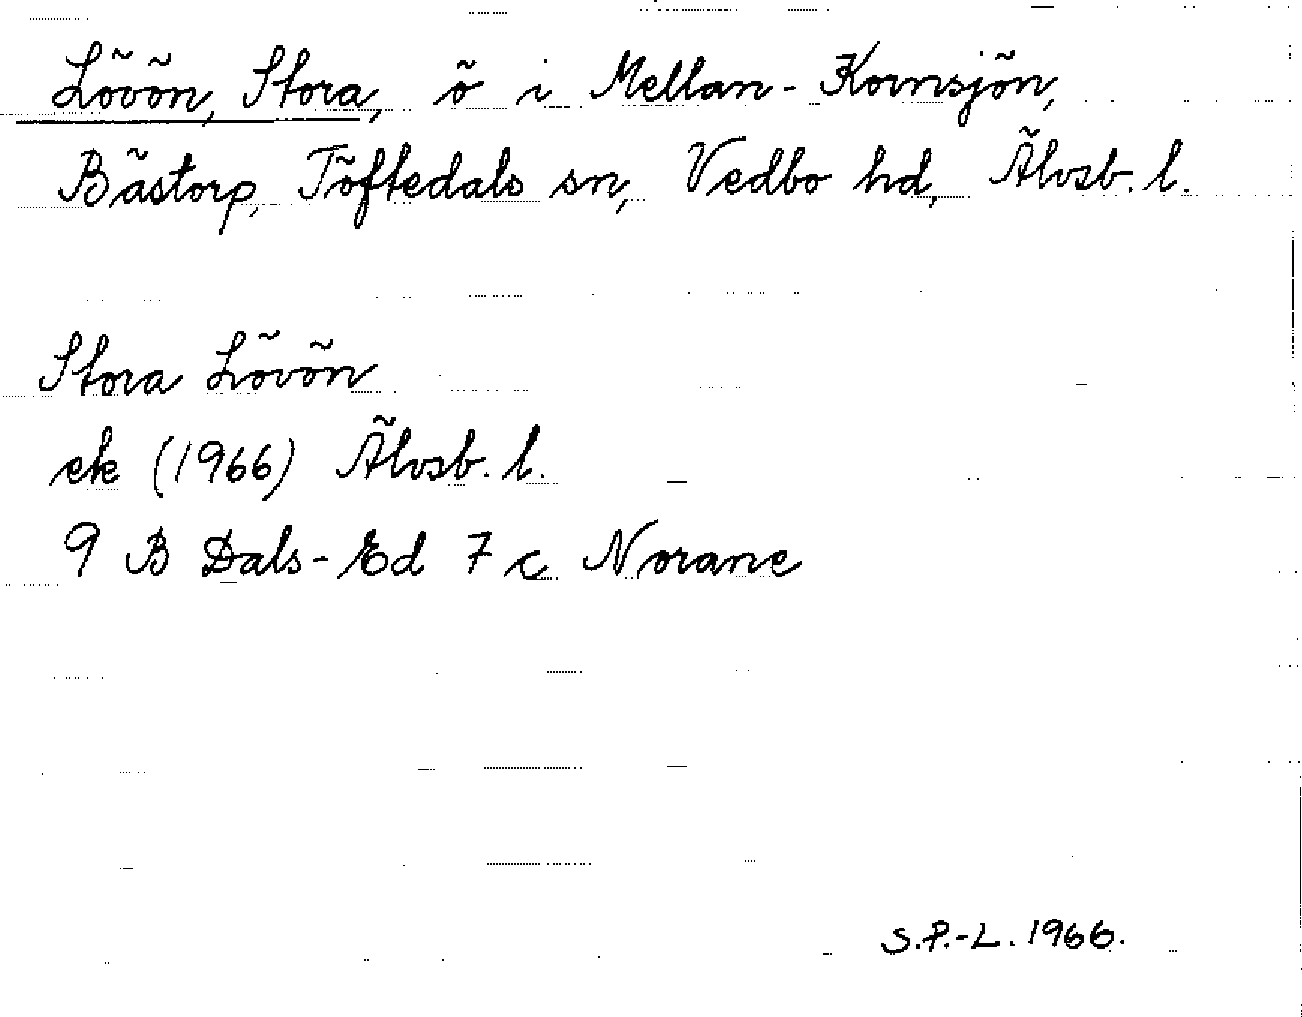 Lövön, Stora, ö i Mellan-Kornsjön,
Bästorp, Töftedals sn, Vedbo hd, Älvsb. l.
Stora Lövön
ek (1966) Älvsb. l.
9 B Dals-Ed 7 c Norane
S.P.-L. 1966.